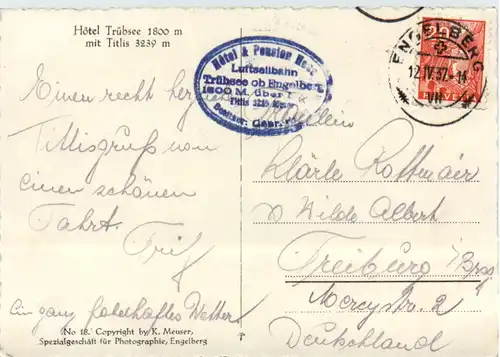 Hôtel Trübsee 1800 m
mit Titlis 3239 m
Hôtel & Pension
Luftseilbahn
Trübsee ob Engelberg
1800 M. über
Titlis 3239 Meter
ENGELBERG
12.IV.37.-14
VII
Einen recht herz
Titlisgruß von
einer schönen
Fahrt.
Klärle Rottmaier
Wilde Albert
Freiburg i/Brsg
Mercystr. 2
Deutschland
Ein ganz fabelhaftes Wetter
No 18. Copyright by K. Meuser,
Spezialgeschäft für Photographie, Engelberg